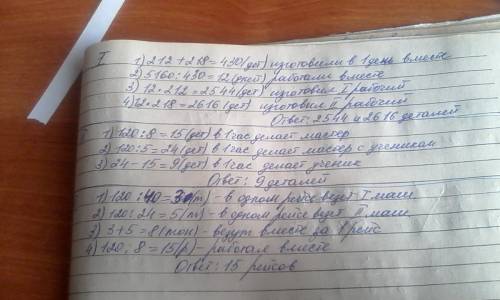 I
1) 212 + 218 = 430 (дет) изготовили в 1 день вместе
2) 5160 : 430 = 12 (дней) работали вместе
3) 12 · 212 = 2544 (дет) изготовил I рабочий
4) 12 · 218 = 2616 (дет) изготовил II рабочий
Ответ: 2544 и 2616 деталей
1) 120 : 8 = 15 (дет) в 1 час делает мастер
2) 120 : 5 = 24 (дет) в 1 час делает мастер с учеником
3) 24 - 15 = 9 (дет) в 1 час делает ученик
Ответ: 9 деталей
1) 120 : 40 = 3 (т) - в одном рейсе везет I маш.
2) 120 : 24 = 5 (т) - в одном рейсе везет II маш.
3) 3 + 5 = 8 (тон) - везут вместе за 1 рейс
4) 120 : 8 = 15 (р) - работая вместе
Ответ: 15 рейсов